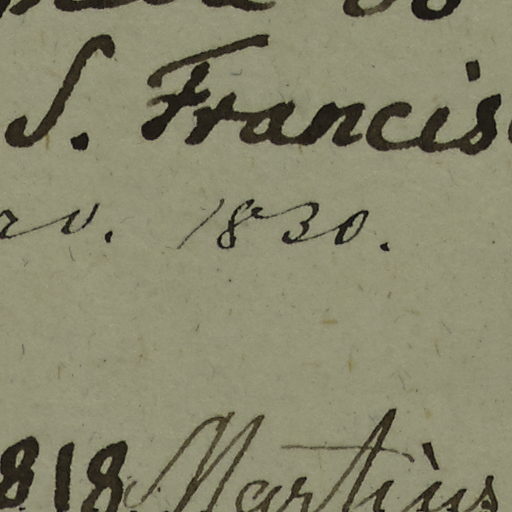 S. Francis
rv. 1830.
818. Martius